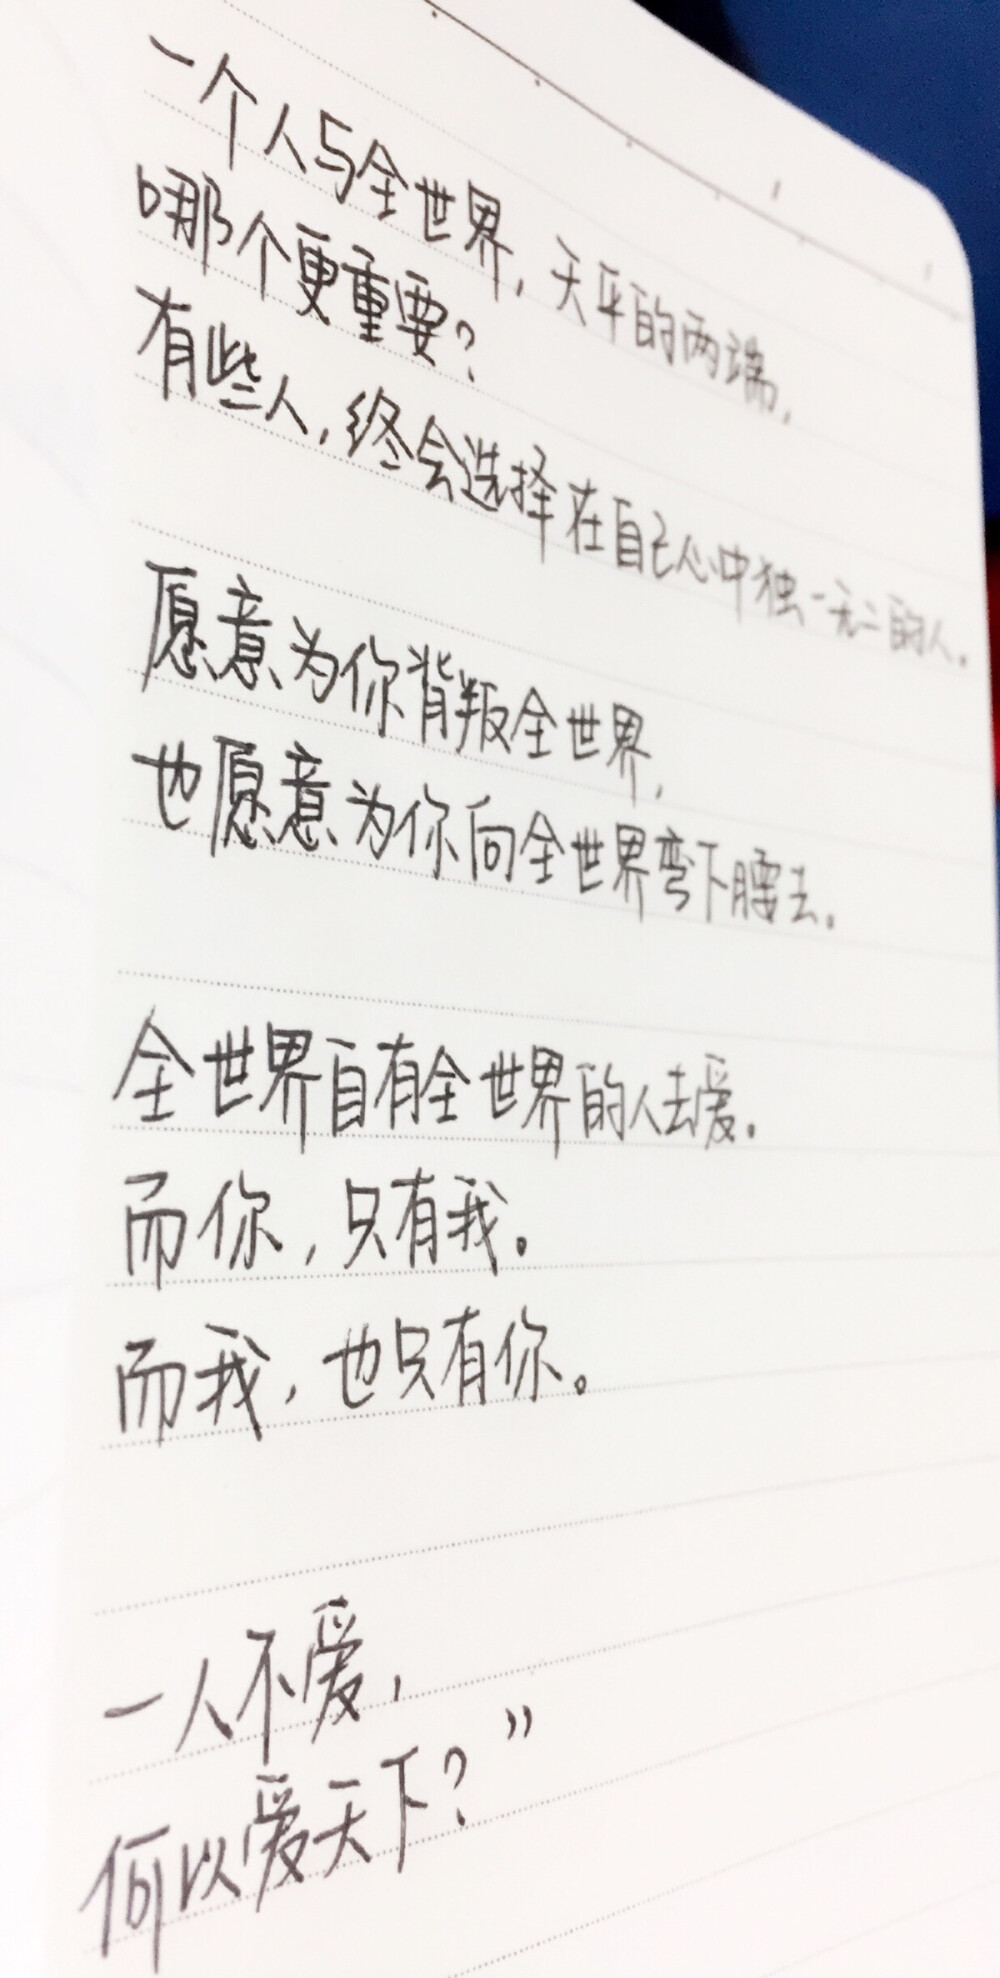 一个人与全世界,天平的两端,
哪个更重要?
有些人,终会选择在自己心中独一无二的人。
愿意为你背叛全世界,
也愿意为你向全世界弯下腰去。
全世界自有全世界的人去爱。
而你,只有我。
而我,也只有你。
一人不爱,
何以爱天下?”